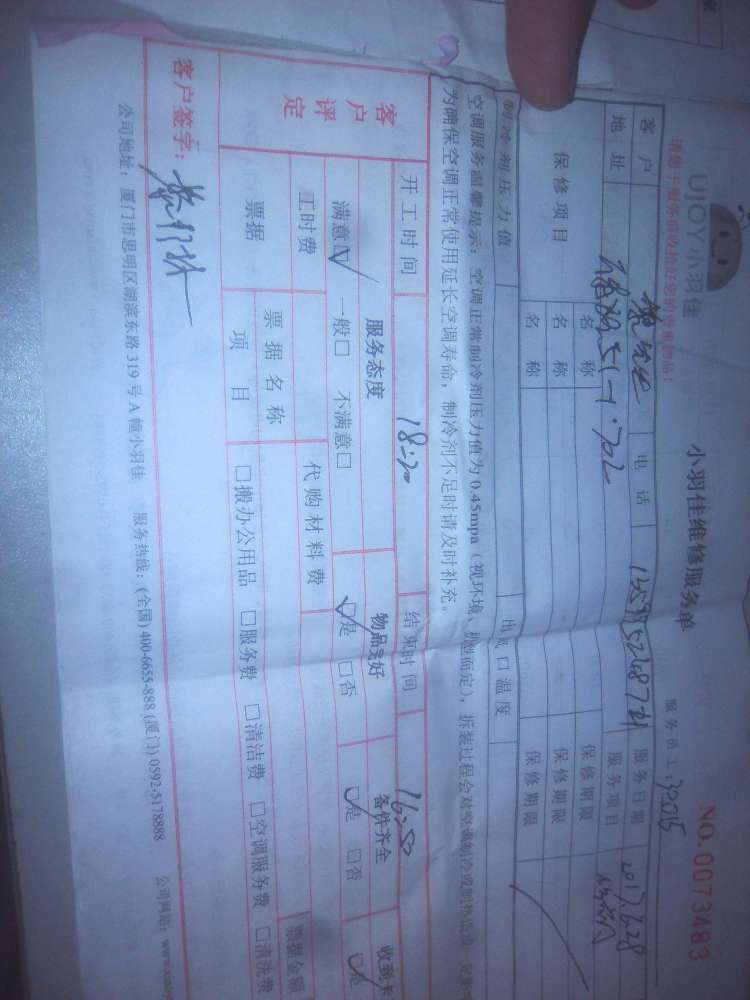 UJOY小羽佳
小羽佳维修服务单
服务员工:32015
NO.0073483
请您于服务前收捡好您的贵重物品!
客户 电话 服务日期 2017.6.28
地址 51-1.702 服务项目
保修项目 名称 保修期限
名称 保修期限
名称 保修期限
制冷剂压力值 出风口温度
空调服务温馨提示:空调正常制冷剂压力值为0.45mpa(视环境、机型而定),拆装过程会对空调制冷或制热造成一定影
为确保空调正常使用延长空调寿命,制冷剂不足时请及时补充。
客户评定
开工时间 18:20 结束时间 16:50
服务态度 物品完好 备件齐全 收到卡
满意☑ 一般□ 不满意□ ☑是 □否 ☑是 □否 ☑是
工时费 代购材料费
票据 票据名称 票据金额
项目 □搬办公用品 □服务费 □清洁费 □空调服务费 □清洗费
客户签字:
公司地址:厦门市思明区湖滨东路319号A幢小羽佳 服务热线:(全国)400-6655-888 (厦门)0592-5178888 公司网站:www.xiaoy